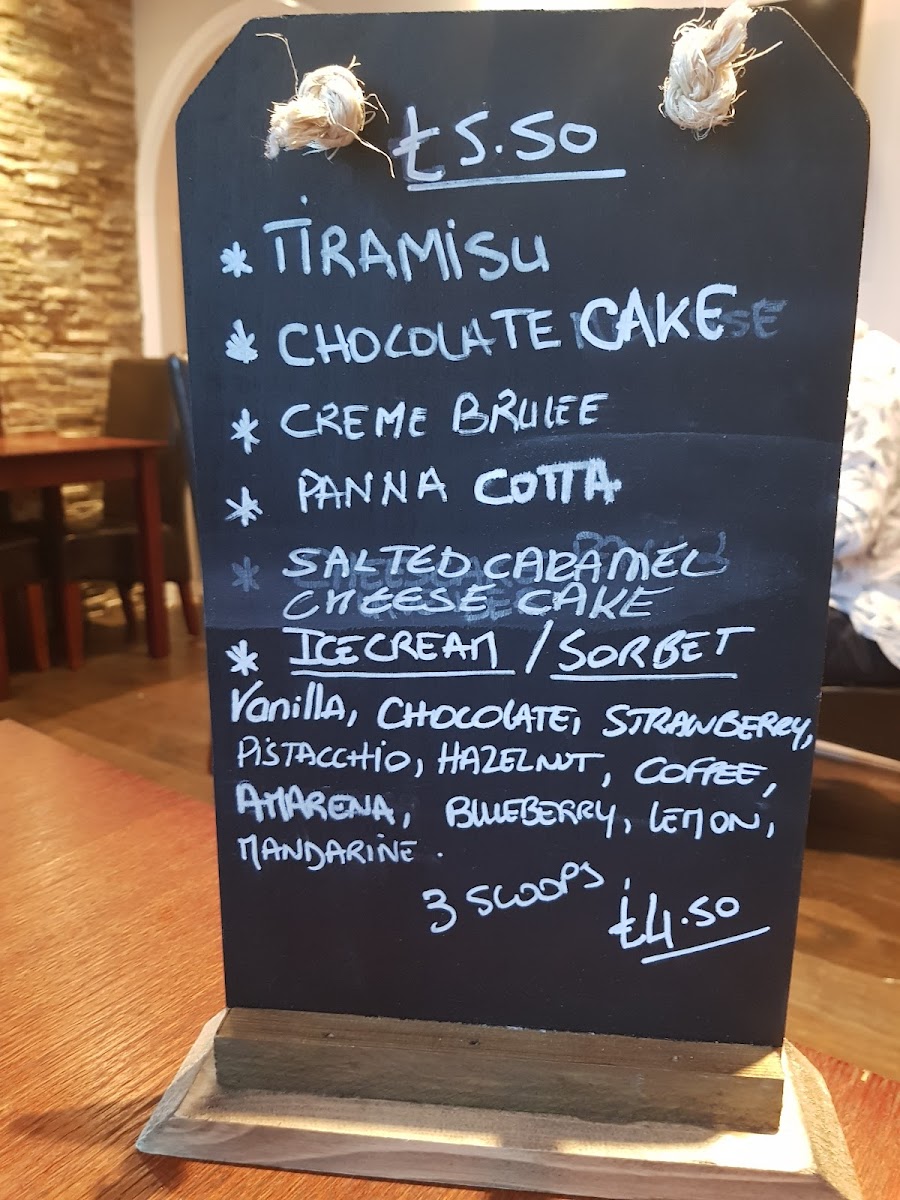 £5.50
* TIRAMISU
* CHOCOLATE CAKE
* CREME BRULEE
* PANNA COTTA
* SALTED CARAMEL
CHEESE CAKE
* ICECREAM / SORBET
Vanilla, CHOCOLATE, STRAWBERRY,
PISTACCHIO, HAZELNUT, COFFEE,
AMARENA, BLUEBERRY, LEMON,
MANDARINE.
3 SCOOPS £4.50